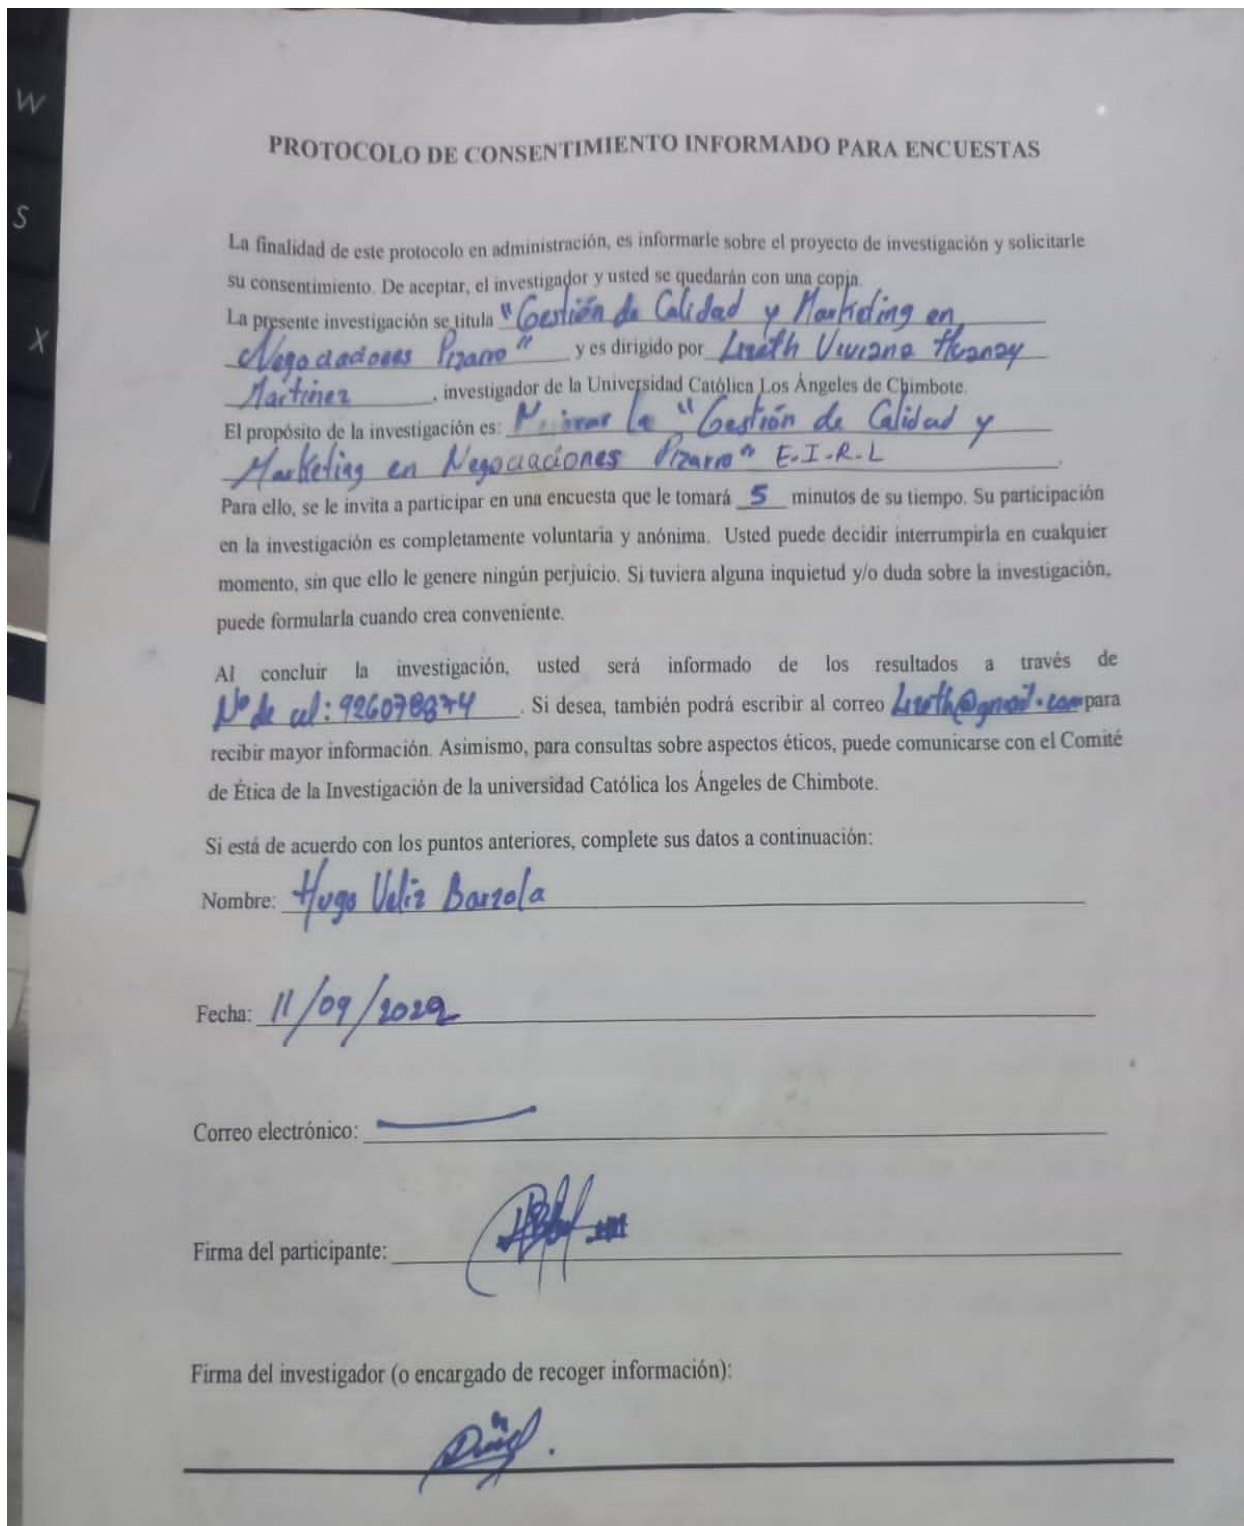 W
S
X
PROTOCOLO DE CONSENTIMIENTO INFORMADO PARA ENCUESTAS
La finalidad de este protocolo en administración, es informarle sobre el proyecto de investigación y solicitarle
su consentimiento. De aceptar, el investigador y usted se quedarán con una copia.
La presente investigación se titula "Gestión de Calidad y Marketing en
Negociaciones Pizarro" y es dirigido por Lizeth Viviana
Martinez, investigador de la Universidad Católica Los Ángeles de Chimbote.
El propósito de la investigación es: la "Gestión de Calidad y
Marketing en Negociaciones Pizarro" E.I.R.L.
Para ello, se le invita a participar en una encuesta que le tomará 5 minutos de su tiempo. Su participación
en la investigación es completamente voluntaria y anónima. Usted puede decidir interrumpirla en cualquier
momento, sin que ello le genere ningún perjuicio. Si tuviera alguna inquietud y/o duda sobre la investigación,
puede formularla cuando crea conveniente.
Al concluir la investigación, usted será informado de los resultados a través de
Nº de cel: 926078874. Si desea, también podrá escribir al correo Lizeth@gmail.com para
recibir mayor información. Asimismo, para consultas sobre aspectos éticos, puede comunicarse con el Comité
de Ética de la Investigación de la universidad Católica los Ángeles de Chimbote.
Si está de acuerdo con los puntos anteriores, complete sus datos a continuación:
Nombre: Hugo Veliz Barzola
Fecha: 11/09/2022
Correo electrónico:
Firma del participante:
Firma del investigador (o encargado de recoger información):